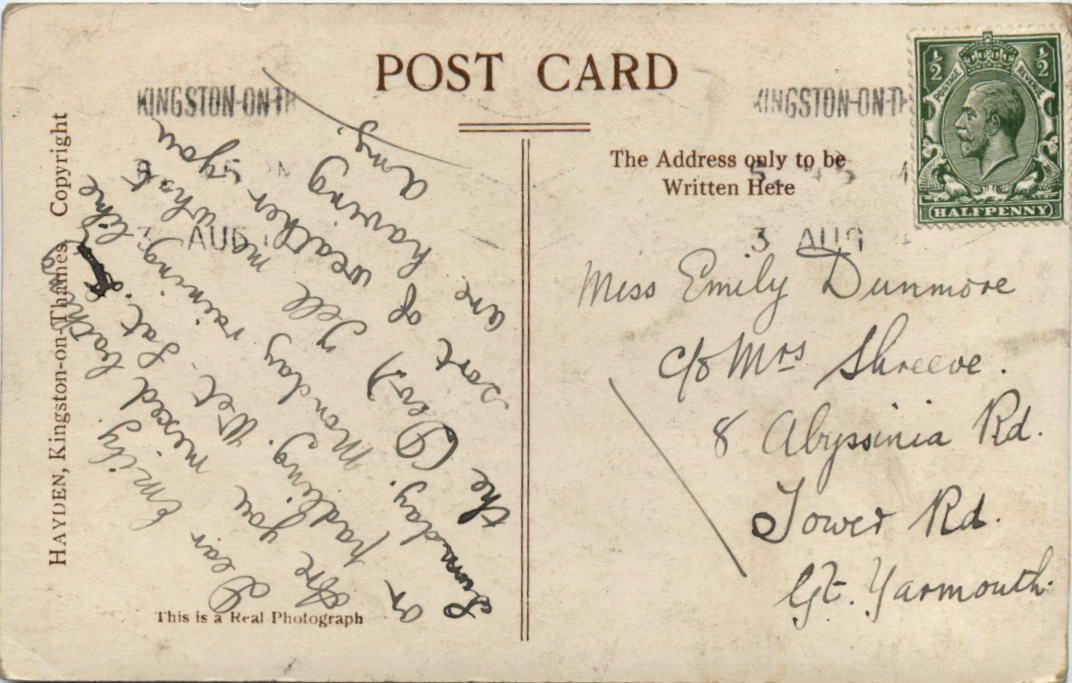 POST CARD
KINGSTON-ON-TH
KINGSTON-ON-TH
3 AUG
3 AUG
HALFPENNY
POSTAGE REVENUE
½ ½
The Address only to be
Written Here
HAYDEN, Kingston-on-Thames Copyright
Dear Emily.
Are you mixed bathing
or padling. Wet. Sat. &
Sunday. Monday raining like
the (Dev.) Tell me what
sort of weather you
are having
Amy.
This is a Real Photograph
Miss Emily Dunmore
c/o Mrs Shreeve.
8 Abyssinia Rd.
Tower Rd.
Gt. Yarmouth.